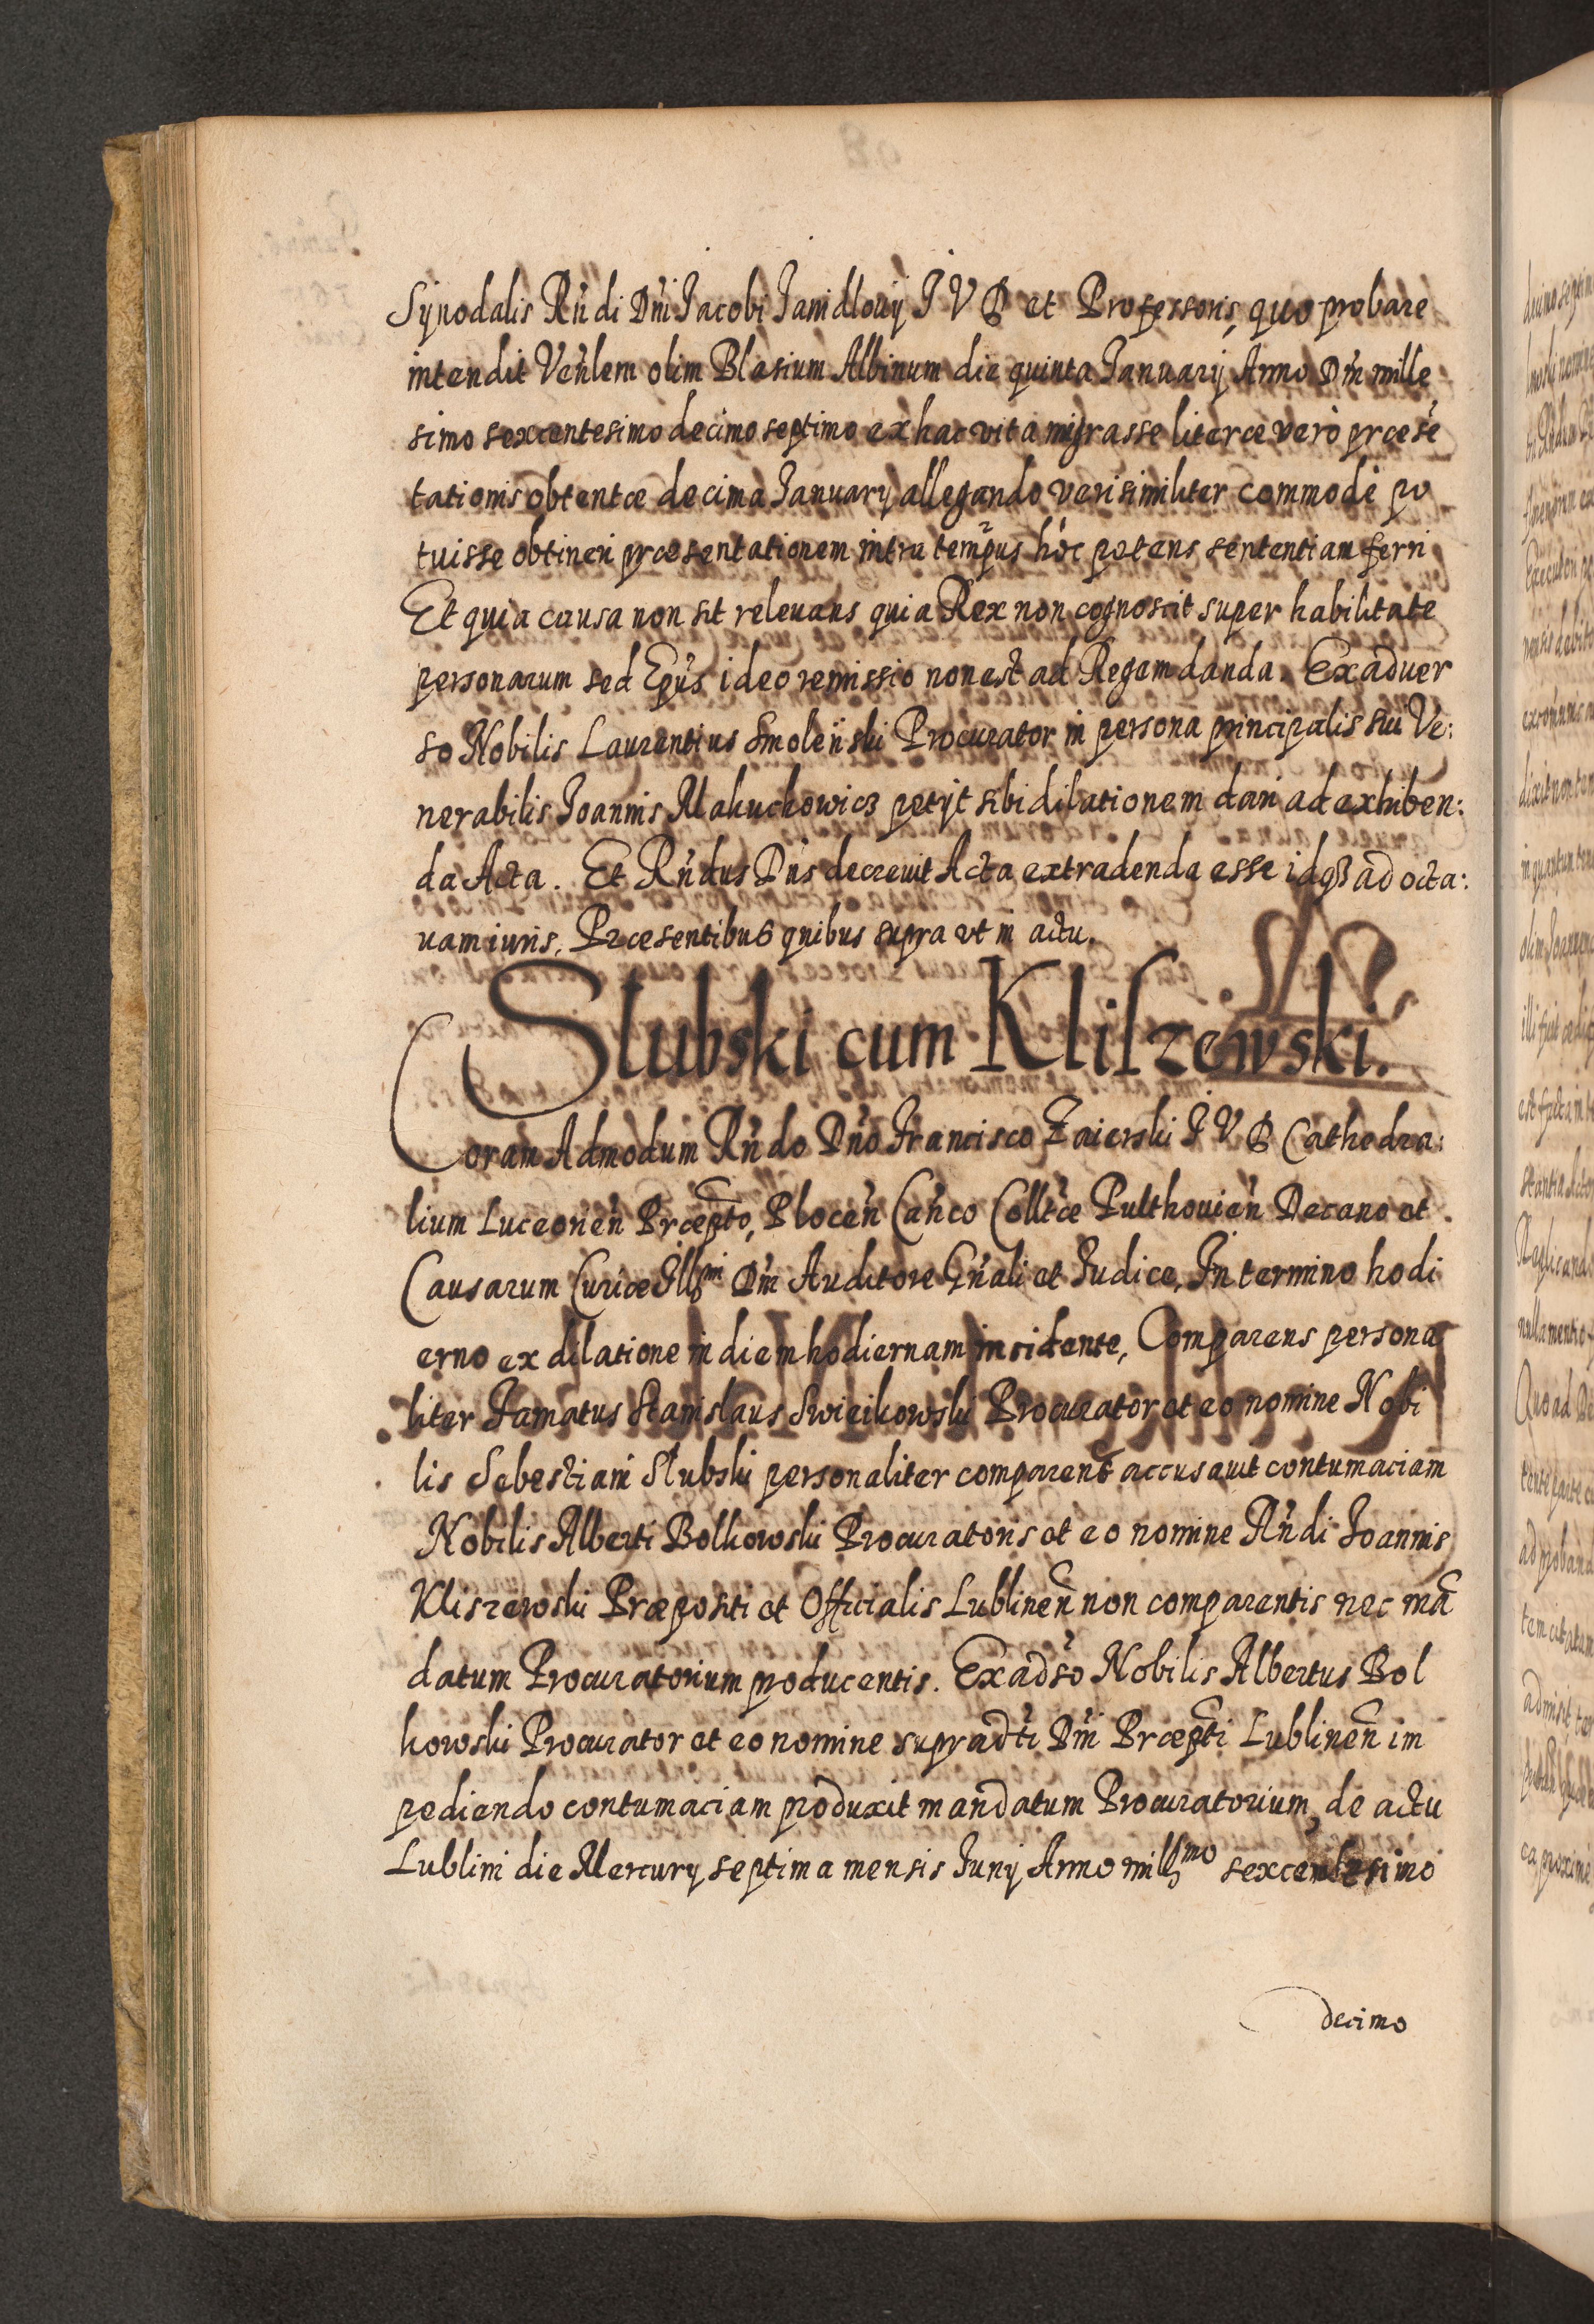 Synodalis Rńdi Dńi Jacobi Janidlouij J V D et Professoris, quo probare
intendit Veńlem olim Blasium Albinum die quinta Januarij Anno Dńi mille
simo sexcentesimo decimo septimo ex hac vita migrasse literæ verò præsē
tationis obtentæ decima January allegando verisimiliter commodè po
tuisse obtineri præsentationem intra tempus hoc petens sententiam ferri
Et quia causa non sit releuans quia Rex non cognoscit super habilitate
personarum sed Epús ideo remissio non est ad Regem danda. Ex aduer
so Nobilis Laurentius Smoleński Procurator in persona principalis sui Ve:
nerabilis Joannis Makuchowicz petijt sibi dilationem dari ad exhiben:
da Acta. Et Rńdus Dńs decreuit Acta extradenda esse idqȝ ad octa:
uam iuris, Præsentibus quibus supra vt in actu.
Slubski cum Kliszewski.
Coram Admodum Rńdo Dńo Francisco Zaierski J V D Cathedra:
lium Luceoneń Præpto, Ploceń Cańco Colltæ Pulthouień Decano et
Causarum Curiæ Illmi Dńi Auditore Gńali et Judice, In termino hodi
erno ex dilatione in diem hodiernam insidente, Comparens persona
liter Famatus Stanislaus Swieikowski Procurator et eo nomine Nobi
lis Sebestiani Slubski personaliter comparent accusauit contumaciam
Nobilis Alberti Bolkowski Procuratoris et eo nomine Rńdi Joannis
Kliszewski Præpositi et Officialis Lublineń non comparentis nec mā
datum Procuratorium producentis. Ex adśo Nobilis Albertus Bol
kowski Procurator et eo nomine supradti Dńi Præpti Lublineń im
pediendo contumaciam produxit mandatum Procuratorium, de actu
Lublini die Mercury septima mensis Junij Anno millmo sexcentesimo
decimo